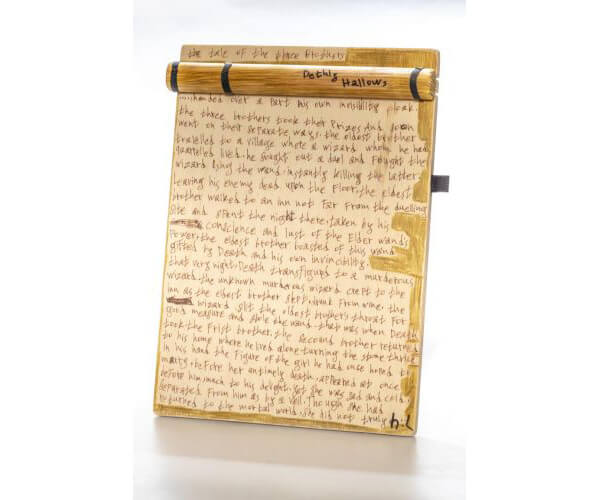 the tale of the three Brothers
Dethly
Hallows
handed over a part his own invisibility cloak.
the three brothers took ther Prizes and soon
went on their separate ways. the eldest brother
travelled to a village where a wizard whom he had
lived. he sought out a duel and fought the
wizard the wand. instantly killing the latter.
leaving his enemy dead upon the floor. the eldest
brother walked to an inn not far from the duelling
site and spent the night there. taken by his
conscience and lust of the Elder wand's
Power. the eldest brother boasted of this wand
gifted by Death and his own invincibility.
that very night. Death transfigurd to a murderous
wizard. the unknown murderous wizard crept to the
inn as the eldest brother slept. drunk from wine. the
wizard slit the eldest brother's throat for
good measure and stole the wand. that was when Death
took the Frist brother. the second brother returned
to his home where he lived alone. turning the stone thrice
in his hand. the Figure of the girl he had once hoped
marry. before her untimely death. appeared at once
before him. much to his delight. yet she was sad and cold.
separated from him as by a veil. Though she had
returned to the mortal world. she did not truly
h.L